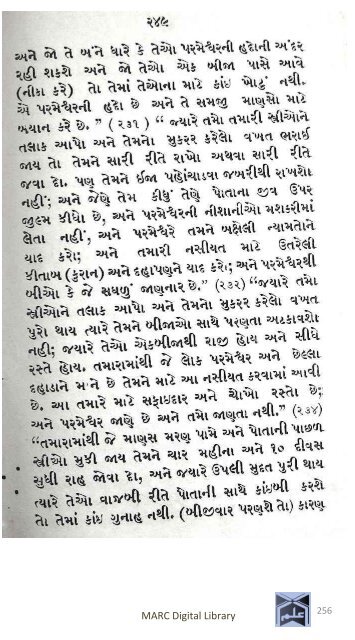 ૨૪૯
અને જો તે બંને ધારે કે તેઓ પરમેશ્વરની હદોની અંદર
રહી શકશે અને જો તેઓ એક બીજા પાસે આવે
(નીકા કરે) તો તેમાં તેઓના માટે કાંઇ ખોટું નથી.
એ પરમેશ્વરની હદો છે અને તે સમજી માણસો માટે
બયાન કરે છે.” (૨૩૧) “જ્યારે તમો તમારી સ્ત્રીઓને
તલાક આપો અને તેમનો મુકરર કરેલો વખત ભરાઈ
જાય તો તેમને સારી રીતે રાખો અથવા સારી રીતે
જવા દો. પણ તેમને ઈજા પહોંચાડવા જબરીથી રાખશો
નહીં; અને જેણે તેમ કીધું તેણે પોતાના જીવ ઉપર
જુલ્મ કીધો છે, અને પરમેશ્વરની નીશાનીઓ મશકરીમાં
લેતા નહીં, અને પરમેશ્વરે તમને બક્ષેલી ન્યામતોને
યાદ કરો; અને તમારી નસીયત માટે ઉતરેલી
કીતાબ (કુરાન) અને દહાપણને યાદ કરો; અને પરમેશ્વરથી
બીઓ કે જે સઘળું જાણનાર છે.” (૨૩૨) “જ્યારે તમો
સ્ત્રીઓને તલાક આપો અને તેમનો મુકરર કરેલો વખત
પુરો થાય ત્યારે તેમને બીજાઓ સાથે પરણતા અટકાવશો
નહીં; જ્યારે તેઓ એકબીજાથી રાજી હોય અને સીધે
રસ્તે હોય. તમારામાંથી જે લોક પરમેશ્વર અને છેલ્લા
દહાડાને માને છે તેમને માટે આ નસીયત કરવામાં આવી
છે. આ તમારે માટે સફાઇદાર અને ચોખો રસ્તો છે;
અને પરમેશ્વર જાણે છે અને તમો જાણતા નથી.” (૨૩૪)
“તમારામાંથી જે માણસ મરણ પામે અને પોતાની પાછળ
સ્ત્રીઓ મુકી જાય તેમને ચાર મહીના અને ૧૦ દીવસ
સુધી રાહ જોવા દો, અને જ્યારે ઉપલી મુદત પુરી થાય
ત્યારે તેઓ વાજબી રીતે પોતાની સાથે કાંઇબી કરશે
તો તેમાં કાંઇ ગુનાહ નથી. (બીજીવાર પરણશે તો) કારણ
MARC Digital Library
256